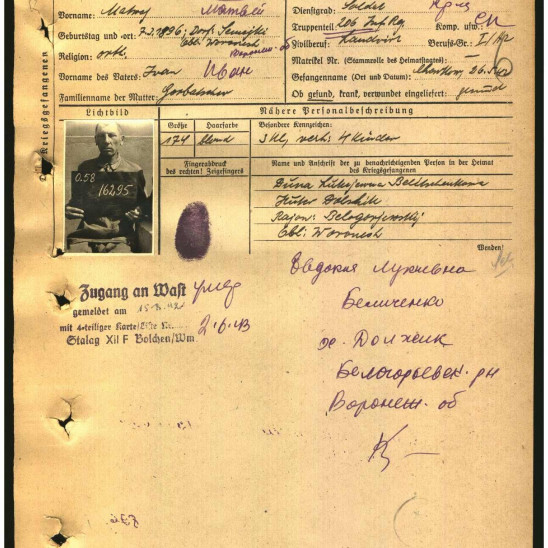 Vorname: Matwej Матвей
Dienstgrad: Soldat
Geburtstag und -ort: 7.2.1896; Dorf
Truppenteil: 206 Inf Reg Komp. usw.:
Obl: Woronesh Воронеж. об
Religion: orth. Zivilberuf: Landwirt Berufs-Gr.: I/
Matrikel Nr. (Stammrolle des Heimatstaates):
Vorname des Vaters: Iwan Иван
Gefangennahme (Ort und Datum): Charkow, 26.5.42
Familienname der Mutter: Gorbatschew
Ob gesund, krank, verwundet eingeliefert: gesund
Kriegsgefangenen
Lichtbild
Nähere Personalbeschreibung
Größe Haarfarbe Besondere Kennzeichen:
174 blond 3 Kl, verh: 4 Kinder
Fingerabdruck
des rechten! Zeigefingers
Name und Anschrift der zu benachrichtigenden Person in der Heimat
des Kriegsgefangenen
0.58
16295
Duna Lukejewna Belitschenkowa
Huter Dolshik
Rajon: Belogorjewskij
Obl: Woronesh
Wenden!
Евдокия Лукивна
Беличенко
Zugang an Wast умер
gemeldet am 15.3.42
mit 4-teiliger Karte/Liste Nr. 2.6.43
Stalag XII F Bolchen/Wm
х. Должик
Белогорьевск. рн
Воронеж. об